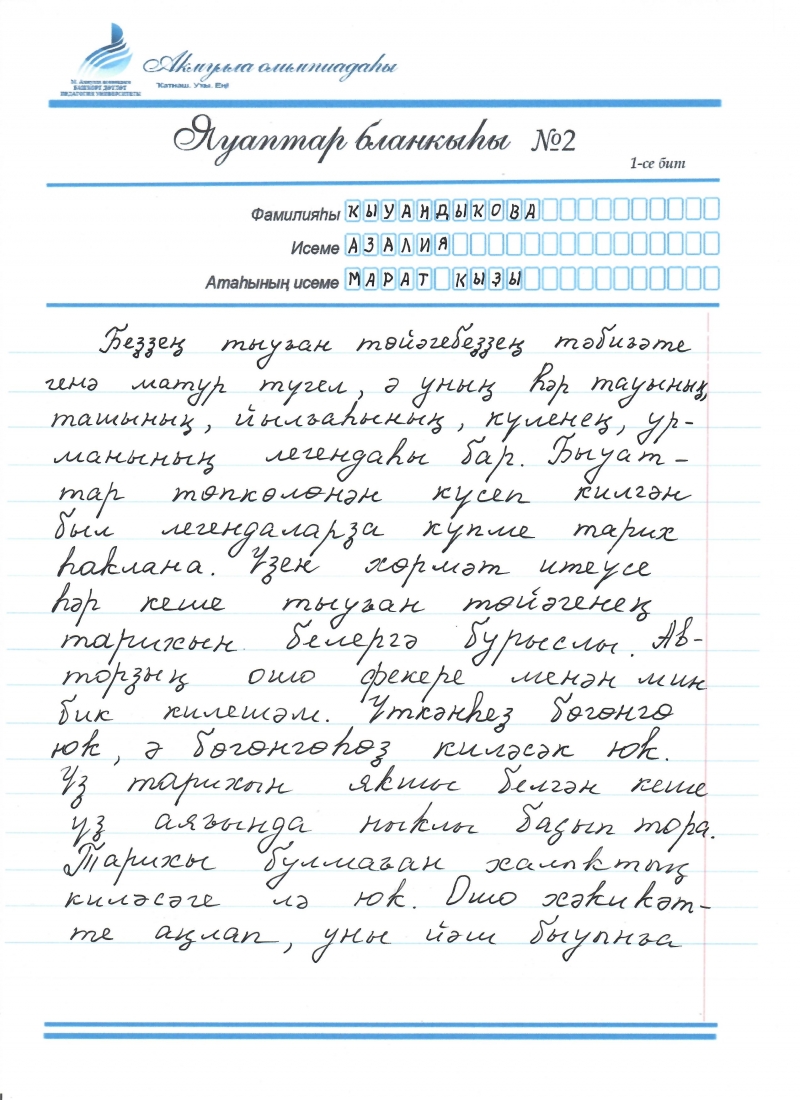 Аҡмулла олимпиадаһы
М. Аҡмулла исемендәге
БАШҠОРТ ДӘҮЛӘТ
ПЕДАГОГИЯ УНИВЕРСИТЕТЫ
Ҡатнаш. Уҙы. Ең!
Яуаптар бланкыһы №2
1-се бит
Фамилияһы КЫУАНДЫКОВА
Исеме АЗАЛИЯ
Атаһының исеме МАРАТ ҠЫҘЫ
Беҙҙең тыуған төйәгебеҙҙең тәбиғәте
генә матур түгел, ә уның һәр тауының,
ташының, йылғаһының, күленең, ур-
манының легендаһы бар. Быуат-
тар төпкөлөнән күсеп килгән
был легендаларҙа күпме тарих
һаҡлана. Үҙен хөрмәт итеүсе
һәр кеше тыуған төйәгенең
тарихын белергә бурыслы. Ав-
торҙың ошо фекере менән мин
бик килешәм. Үткәнһеҙ бөгөнгө
юҡ, ә бөгөнгөһөҙ киләсәк юҡ.
Үҙ тарихын яҡшы белгән кеше
үҙ аяғында ныҡлы баҫып тора.
Тарихы булмаған халыҡтың
киләсәге лә юҡ. Ошо хәҡиҡәт-
те аңлап, уны йәш быуынға